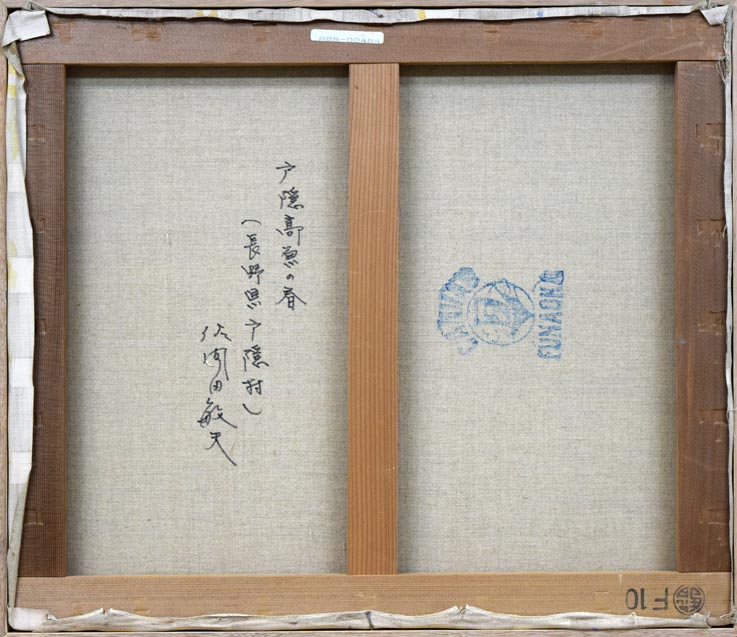 戸隠高原の春
(長野県戸隠村)
佐間田敏夫
CANVAS
FUNAOKA
F10